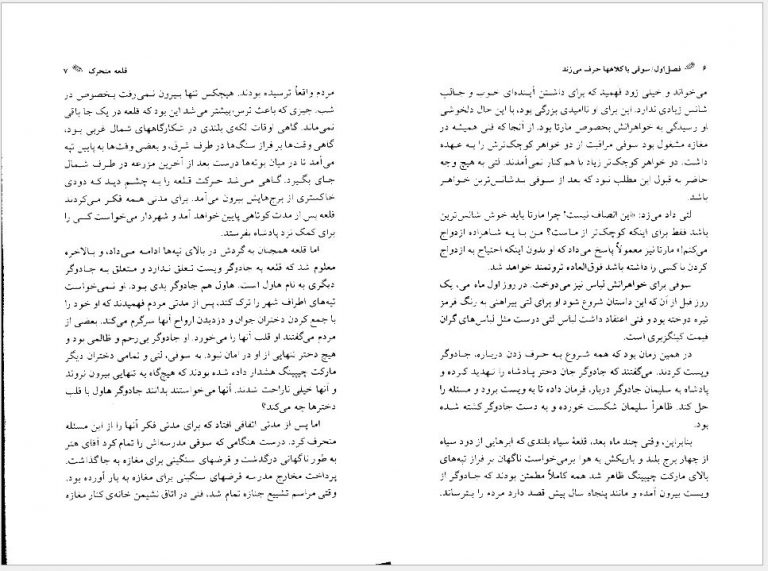 ۶ فصل اول/سوفی با کلاهها حرف می‌زند
می‌خواند و خیلی زود فهمید که برای داشتن آینده‌ای خوب و جالب
شانس زیادی ندارد. این برای او ناامیدی بزرگی بود، با این حال دلخوشی
او رسیدگی به خواهرانش بخصوص مارتا بود. از آنجا که فنی همیشه در
مغازه مشغول بود سوفی مراقبت از دو خواهر کوچک‌ترش را به عهده
داشت. دو خواهر کوچک‌تر زیاد با هم کنار نمی‌آمدند. لتی به هیچ وجه
حاضر به قبول این مطلب نبود که بعد از سوفی بدشانس‌ترین خواهر
باشد.
لتی داد می‌زد: «این انصاف نیست! چرا مارتا باید خوش شانس‌ترین
باشد فقط برای اینکه کوچک‌تر از ماست؟ من با یه شاهزاده ازدواج
می‌کنم!» مارتا نیز معمولاً پاسخ می‌داد که او بدون اینکه احتیاج به ازدواج
کردن با کسی را داشته باشد فوق‌العاده ثروتمند خواهد شد.
سوفی برای خواهرانش لباس نیز می‌دوخت. در روز اول ماه می، یک
روز قبل از آن که این داستان شروع شود او برای لتی پیراهنی به رنگ قرمز
تیره دوخته بود و فنی اعتقاد داشت لباس لتی درست مثل لباس‌های گران
قیمت کینگزبری است.
در همین زمان بود که همه شروع به حرف زدن درباره، جادوگر
ویست کردند. می‌گفتند که جادوگر جان دختر پادشاه را تهدید کرده و
پادشاه به سلیمان جادوگر دربار، فرمان داده تا به ویست برود و مسئله را
حل کند. ظاهراً سلیمان شکست خورده و به دست جادوگر کشته شده
بود.
بنابراین، وقتی چند ماه بعد، قلعهٔ سیاه بلندی که ابرهایی از دود سیاه
از چهار برج بلند و باریکش به هوا برمی‌خواست ناگهان بر فراز تپه‌های
بالای مارکت چیپینگ ظاهر شد همه کاملاً مطمئن بودند که جادوگر از
ویست بیرون آمده و مانند پنجاه سال پیش قصد دارد مرده را بترساند.
قلعه متحرک ۷
مردم واقعاً ترسیده بودند. هیچکس تنها بیرون نمی‌رفت بخصوص در
شب. چیزی که باعث ترس بیشتر می‌شد این بود که قلعه در یک جا باقی
نمی‌ماند. گاهی اوقات لکه‌ی بلندی در شکارگاههای شمال غربی بود،
گاهی وقت‌ها بر فراز سنگ‌ها در طرف شرق، و بعضی وقت‌ها به پایین تپه
می‌آمد تا در میان بوته‌ها درست بعد از آخرین مزرعه در طرف شمال
جای بگیرد. گاهی می‌شد حرکت قلعه را به چشم دید که دودی
خاکستری از برج‌هایش بیرون می‌آمد. برای مدتی همه فکر می‌کردند
قلعه پس از مدت کوتاهی پایین خواهد آمد و شهردار می‌خواست کسی را
برای کمک نزد پادشاه بفرستد.
اما قلعه همچنان به گردش در بالای تپه‌ها ادامه می‌داد، و بالاخره
معلوم شد که قلعه به جادوگر ویست تعلق ندارد و متعلق به جادوگر
دیگری به نام هاول است. هاول هم جادوگر بدی بود. او نمی‌خواست
تپه‌های اطراف شهر را ترک کند، پس از مدتی مردم فهمیدند که او خود را
با جمع کردن دختران جوان و دزدیدن ارواح آنها سرگرم می‌کند. بعضی از
مردم می‌گفتند او قلب آنها را می‌خورد. او جادوگر بی‌رحم و ظالمی بود و
هیچ دختر تنهایی از او در امان نبود. به سوفی، لتی و تمامی دختران دیگر
مارکت چیپینگ هشدار داده شده بودند که هیچ‌گاه به تنهایی بیرون نروند
و آنها خیلی ناراحت شدند. آنها می‌خواستند بدانند جادوگر هاول با قلب
دخترها چه می‌کند؟
اما پس از مدتی اتفاقی افتاد که برای مدتی فکر آنها را از این مسئله
منحرف کرد. درست هنگامی که سوفی مدرسه‌اش را تمام کرد آقای هتر
به طور ناگهانی درگذشت و قرضهای سنگینی برای مغازه به جا گذاشت.
پرداخت مخارج مدرسه قرضهای سنگینی برای مغازه به بار آورده بود.
وقتی مراسم تشییع جنازه تمام شد، فنی در اتاق نشیمن خانه‌ی کنار مغازه